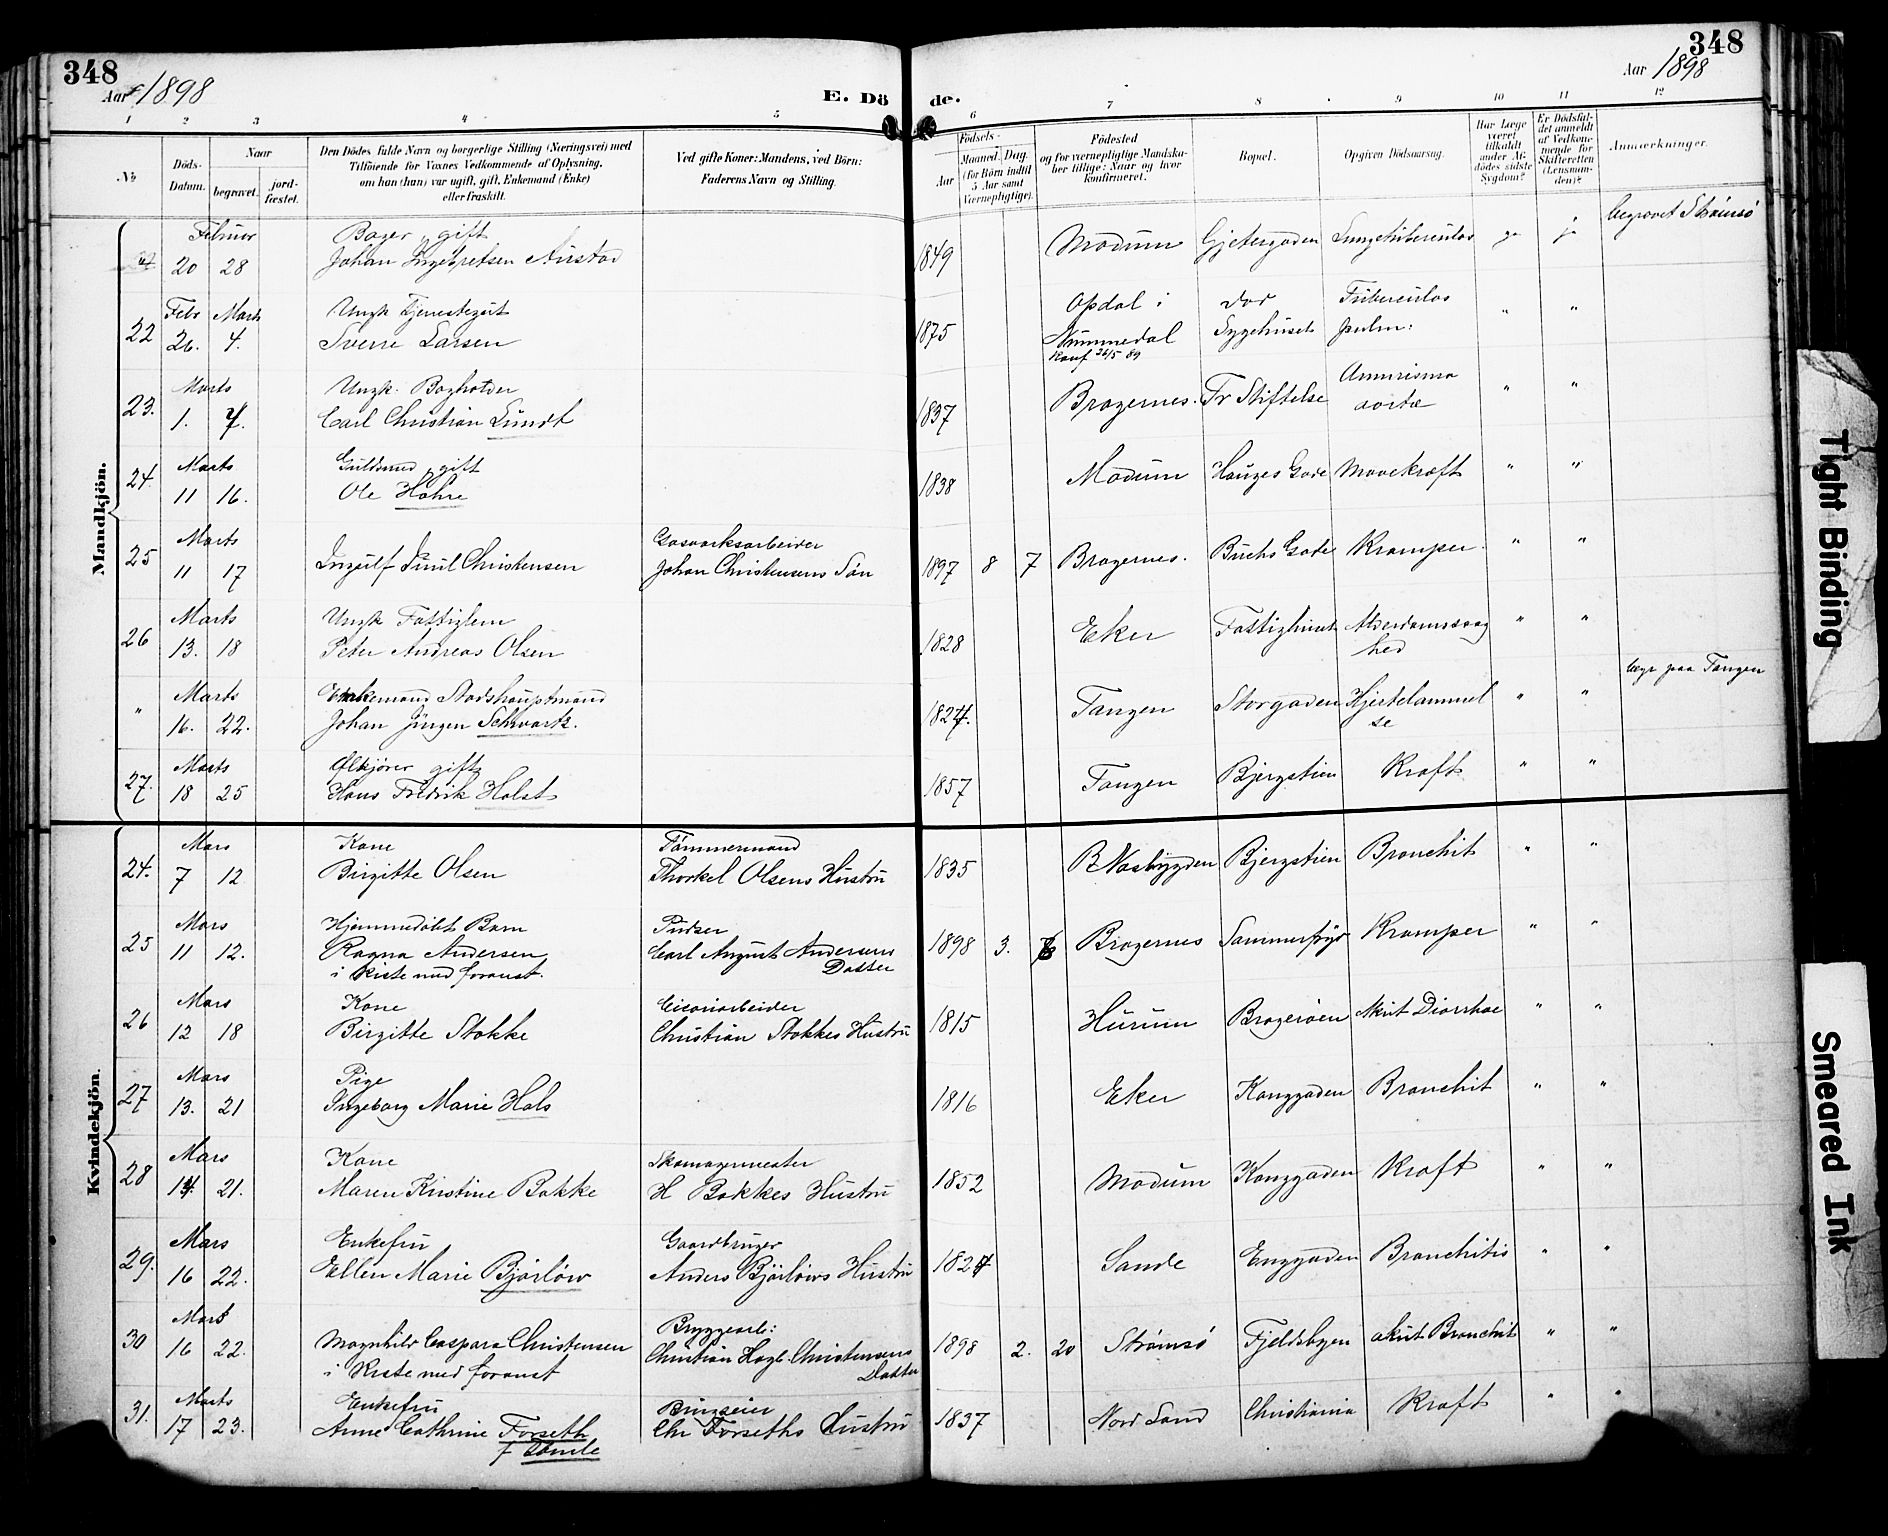 348
Aar 1898
E. Dö
de.
348
Aar 1898
1 2 3 4 5 6 7 8 9 10 11 12
No
Döds-Datum.
Naar
begravet.
jordfæstet.
Den Dödes fulde Navn og borgerlige Stilling (Næringsvei) med
Tilföiende for Voxnes Vedkommende af Oplysning,
om han (hun) var ugift, gift, Enkemand (Enke)
eller fraskilt.
Ved gifte Koner: Mandens, ved Börn:
Faderens Navn og Stilling.
Födsels-
Aar
Maaned. Dag.
(for Börn indtil
5 Aar samt
Værnepligtige).
Födested
og for værnepligtige Mandska-
ber tillige: Naar og hvor
konfirmeret.
Bopæl.
Opgiven Dödsaarsag.
Har Læge
været
tilkaldt
under Af-
dödes sidste
Sygdom?
Er Dödsfal-
det anmeldt
af Vedkom-
mende for
Skifteretten
(Lensman-
den)?
Anmærkninger.
Mandkjön.
Februar
20 28
Bager, gift
Johan Ingebretsen Aurstad
1849
Modum
Gjetergaden
Lungetuberculos
ja
ja
begravet Strömsö
22
Febr Marts
26. 4.
Ungk Tjenestegut
Sverre Larsen
1875
Opdal i
Nummedal
Konf 26/5 89
Sygehuset
Tuberculos
pulm:
" "
23.
Marts
1. 7.
Ungk. Bogholder
Carl Christian Lundt
1837
Bragernes.
Fr Stiftelse
Anurisma
aortæ
" "
24.
Marts
11 16.
Guldsmed, gift
Ole Hohre
1838
Modum
Hauges Gade
Mavekræft
" "
25
Marts
11 17
Ingulf Emil Christensen
Gasværksarbeider
Johan Christensens Sön
1897 8 7
Bragernes.
Buchs Gade
Kramper.
" "
26
Marts
13. 18
Ungk Fattiglem
Peter Andreas Olsen
1828
Eker
Fattighuset
Alderdomssvag
hed
" "
"
Marts
16. 22.
Enkemand Stadshauptmand
Johan Jürgen Schwartz.
1824.
Tangen
Storgaden
Hjertelammel
se
" "
begr paa Tangen
27.
Marts
18 25
Ølkjører gift
Hans Fredrik Holst
1857
Tangen
Bjergstien
Kræft
" "
Kvindekjön.
24.
Mars
7 12
Kone
Birgitte Olsen
Tömmermand
Thorkel Olsens Hustru
1835
B. Næsbygden
Bjergstien
Bronchit
" "
25
Mars
11 12.
Hjemmedöbt Barn
Ragna Andersen
i Kiste med foranst.
Pudser
Carl August Andersens
Datter
1898 3.
Bragernes
Sommerfryd
Kramper
" "
26
Mars
12 18
Kone
Birgitte Stokke
Cicoriarbeider
Christian Stokkes Hustru
1815
Hurum
Bragerøen
Akut Diarrhoe
" "
27
Mars
13. 21
Pige
Ingeborg Marie Hals
1816
Eker
Konggaden
Bronchit
" "
28
Mars
14. 21.
Kone
Maren Kristine Bakke
Skomagermester
H Bakkes Hustru
1852
Modum
Konggaden
Kræft
" "
29.
Mars
16 22.
Enkefru
Ellen Marie Bjørløw
Gaardbruger
Anders Bjørløws Hustru
1824
Sande
Enggaden
Bronchitis
" "
30
Mars
16 22.
Magnhild Caspara Christensen
i Kiste med foranst
Bryggearb:
Christian Hagb. Christensens
Datter
1898 2. 20
Strømsö
Fjeldsbyen
akut Bronchit
" "
31.
Marts
17 23.
Enkefru
Anne Cathrine Forseth
f Tömte
Brugseier
Chr Forseths Hustru
1837
Nord Land
Christiania
Kræft
" "
Tight Binding
Smeared Ink